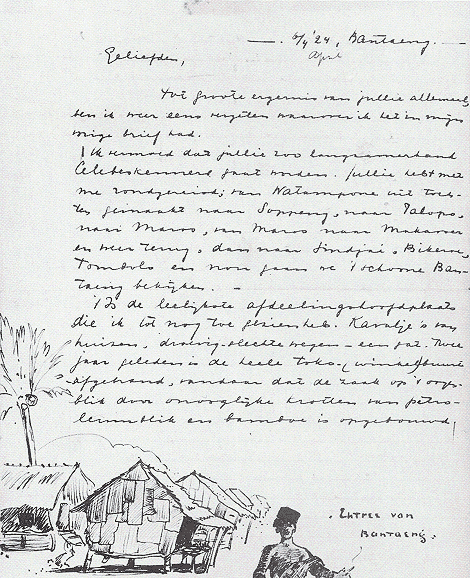 6/4 '24, Bantaeng.
April
Geliefden,
Tot groote ergernis van jullie allemaal,
ben ik weer eens vergeten waarover ik het in mijn
vorige brief had.
Ik vermoed dat jullie zoo langzamerhand
Celebeskenners gaat worden. Jullie hebt met
me rondgereisd; van Watampone uit toch-
ten gemaakt naar Soppeng, naar Palopo,
naar Maros, van Maros naar Makasser
en weer terug, dan naar Sindjai, Bikeroe,
Tombolo en nou gaan we 't schoone Ban-
taeng bekijken. —
't Is de leelijkste afdeelingshoofdplaats
die ik tot nog toe gezien heb. Kavalje's van
huizen, droevig-slechte wegen – een gat. Twee
jaar geleden is de heele toko- (winkel) buurt
afgebrand, vandaar dat de zaak op 't oogen-
blik door onooglijke krotten van petro-
leumblik en bamboe is opgebouwd,
. Entree van
Bantaeng.